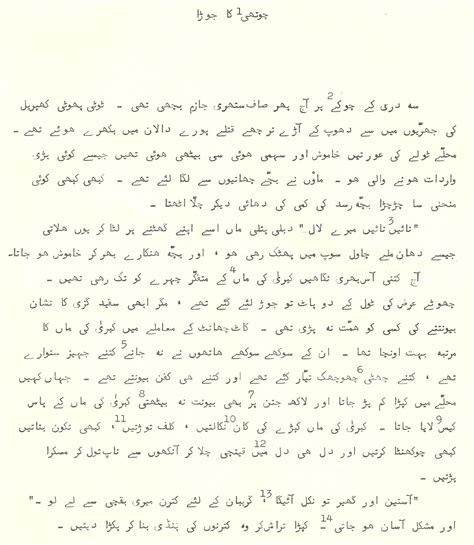 چوتھی1 کا جوڑا
سہ دری کے چوکے2 پر آج پھر صاف ستھری جازم بچھی تھی ۔ ٹوٹی پھوٹی کھپریل
کی جھریوں میں سے دھوپ کے آڑے ترچھے قتلے پورے دالان میں بکھرے ہوئے تھے ۔
محلّے ٹولے کی عورتیں خاموش اور سہمی ہوئی سی بیٹھی ہوئی تھیں جیسے کوئی بڑی
واردات ہونے والی ہو ۔ ماؤں نے بچّے چھاتیوں سے لگا لئے تھے ۔ کبھی کبھی کوئی
منحنی سا چڑچڑا بچّہ رسد کی کمی کی دھائی دیکر چلّا اٹھتا ۔
"نائیں3 نائیں میرے لال" دبلی پتلی ماں اسے اپنے گھٹنے پر لٹا کر یوں ہلاتی
جیسے دھان ملے چاول سوپ میں پھٹک رھی ھو ، اور بچّہ ھنکارے بھر کر خاموش ھو جاتا۔
آج کتنی آس بھری نگاھیں کبریٰ کی ماں4 کے متفکّر چہرے کو تک رھی تھیں ۔
چھوٹے عرض کی ٹول کے دو پاٹ تو جوڑ لئے گئے تھے ، مگر ابھی سفید گزی کا نشان
بیونتنے کی کسی کو ھمّت نہ پڑی تھی ۔ کاٹ چھانٹ کے معاملے میں کبریٰ کی ماں کا
مرتبہ بہت اونچا تھا ۔ ان کے سوکھے سوکھے ھاتھوں نے نہ جانے5 کتنے جہیز سنوارے
تھے ، کتنے چھٹی6 چھوچھک تیّار کئے تھے اور کتنے ھی کفن بیونتے تھے ۔ جہاں کہیں
محلّے میں کپڑا کم پڑ جاتا اور لاکھ جتن پر7 بھی بیونت نہ بیٹھتی8 کبریٰ کی ماں کے پاس
کیس9 لایا جاتا ۔ کبریٰ کی ماں کپڑے کی کان10 نکالتیں ، کلف توڑتیں11، کبھی تکون بناتیں
کبھی چوکھنٹا کرتیں اور دل ھی دل میں12 قینچی چلا کر آنکھوں سے ناپ تول کر مسکرا
پڑتیں ۔
"آستین اور گھیر تو نکل آئیگا13، گریبان کے لئے کترن میری بقچی سے لے لو ۔"
اور مشکل آسان ھو جاتی14۔ کپڑا تراش کر وہ کترنوں کی پنڈی بنا کر پکڑا دیتیں ۔